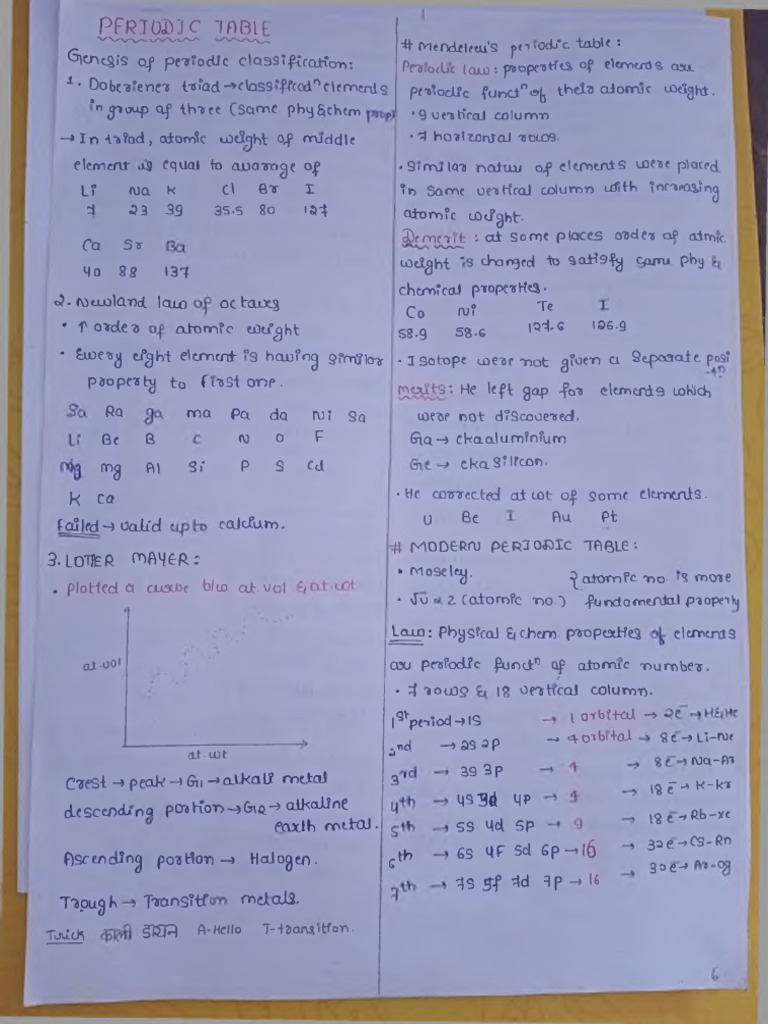 PERIODIC TABLE
Genesis of periodic classification:
1. Doberiener triad → classificadⁿ elements
in group of three (same phy & chem prop)
→ In triad, atomic weight of middle
element is equal to avarage of
Li Na K Cl Br I
7 23 39 35.5 80 127
Ca Sr Ba
40 88 137
2. Newland law of octaves
• ↑ order of atomic weight
• Every eight element is having similar
property to first one.
Sa Ra ga ma Pa da Ni Sa
Li Be B C N O F
mg Al Si P S Cd
K Ca
Failed → valid upto calcium.
3. LOTHER MAYER:
• Plotted a curve b/w at vol & at wt
at vol
at wt
Crest → peak → G1 → alkali metal
descending portion → G2 → alkaline
earth metal.
Ascending portion → Halogen.
Trough → Transition metals.
Trick काली डायन A-Hello T-transition.
# Mendeleev's periodic table:
Periodic law: properties of elements are
periodic functⁿ of their atomic weight.
• 9 vertical column
• 7 horizontal rows.
• Similar nature of elements were placed
in same vertical column with increasing
atomic weight.
Demerit: at some places order of atmic
weight is changed to satisfy same phy &
chemical properties.
Co Ni Te I
58.9 58.6 127.6 126.9
• Isotope were not given a separate position
merits: He left gap for elements which
were not discovered.
Ga → eka aluminium
Ge → eka silicon.
• He corrected at wt of some elements.
U Be I Au Pt
# MODERN PERIODIC TABLE:
• Moseley. } atomic no. is more
• √υ ∝ Z (atomic no.) fundamental property
Law: Physical & chem properties of elements
are periodic functⁿ of atomic number.
• 7 rows & 18 vertical column.
1st period → 1S → 1 orbital → 2e⁻ → H & He
2nd → 2S 2P → 4 orbital → 8e⁻ → Li-Ne
3rd → 3S 3P → 4 → 8e⁻ → Na-Ar
4th → 4S 3d 4P → 9 → 18e⁻ → K-Kr
5th → 5S 4d 5p → 9 → 18e⁻ → Rb-xe
6th → 6S 4F 5d 6P → 16 → 32e⁻ → CS-Rn
7th → 7S 5f 7d 7P → 16 → 30e⁻ → Ar-Og
6